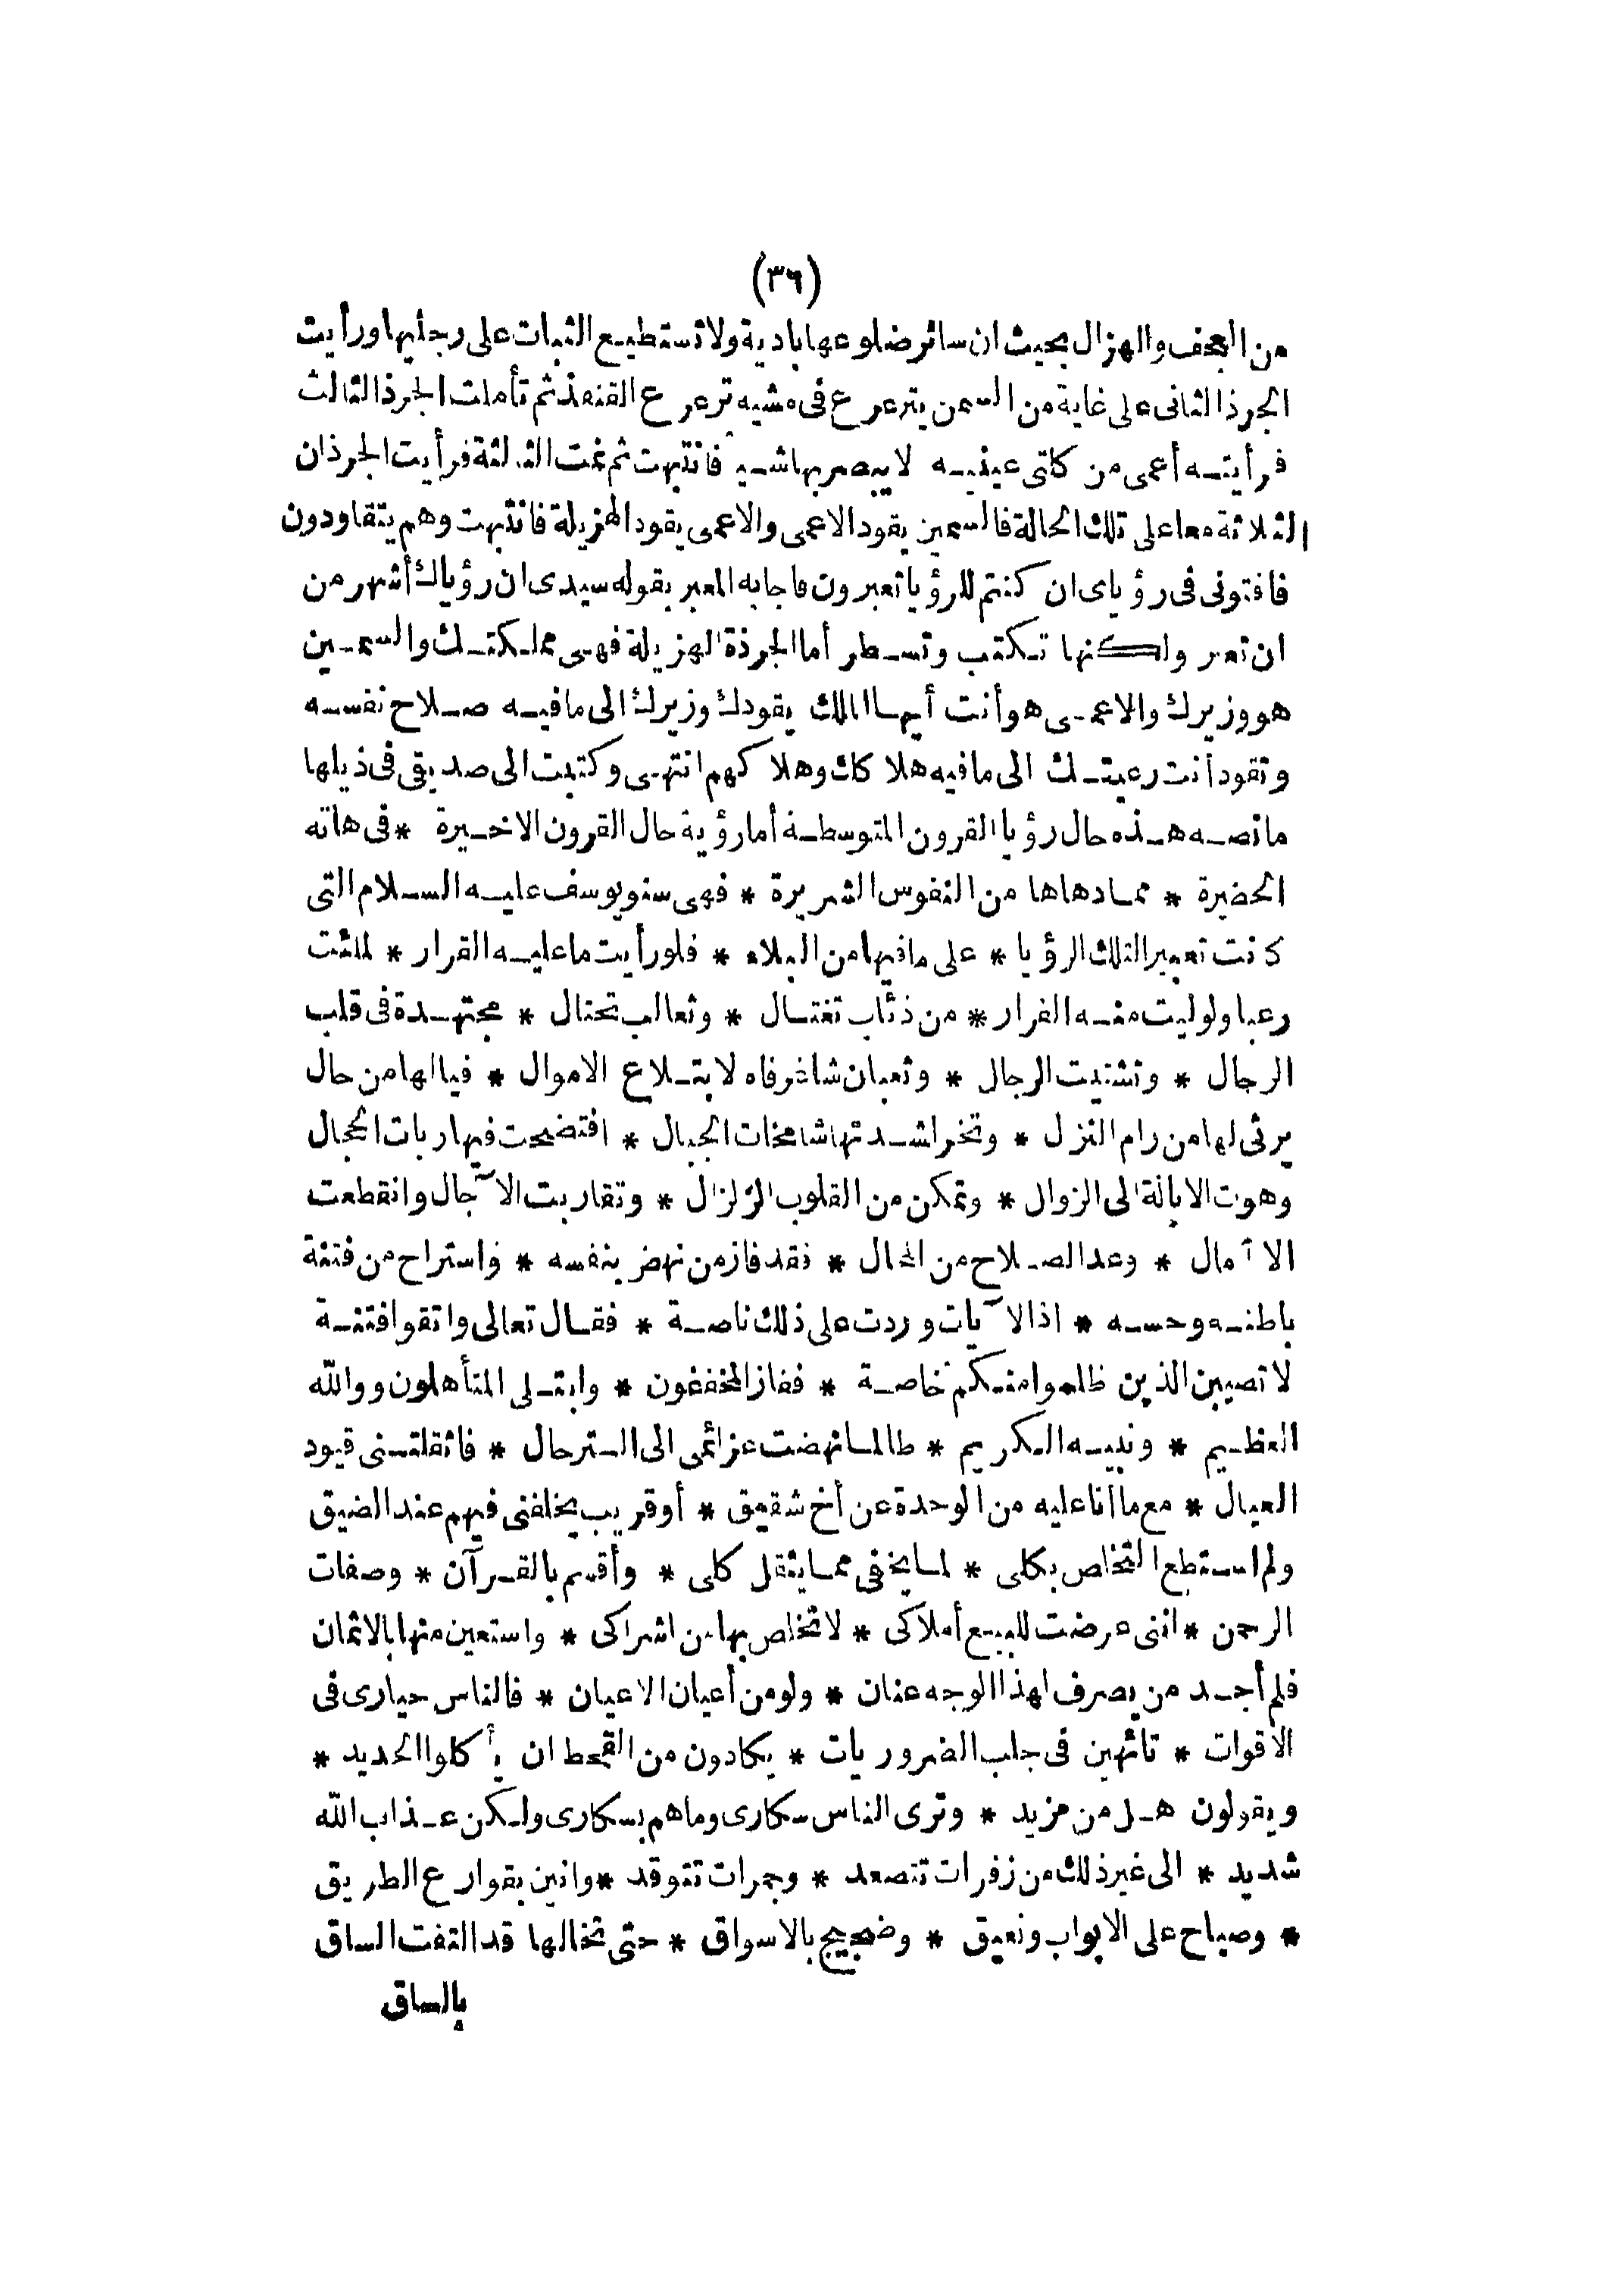 (٣٦)
من العجف والهزال بحيث ان سائر ضلوعها بادية ولا تستطيع الثبات على رجليها ورأيت
الجرذ الثانى على غاية من السمن يترعرع فى مشيه ترعرع القنفذ ثم تأملت الجرذ الثالث
فرأيته أعمى من كاتى عينيه لا يبصر بها شيئا فانتبهت ثم نمت الثالثة فرأيت الجرذان
الثلاثة معا على تلك الحالة فالسمين يقود الاعمى والاعمى يقود الهزيلة فانتبهت وهم يتقاودون
فافتونى فى رؤياى ان كنتم للرؤيا تعبرون فاجابه المعبر بقوله سيدى ان رؤياك أشهر من
ان تعبر ولكنها تكتب وتسطر أما الجرذة الهزيلة فهى مملكتك والسمين
هو وزيرك والاعمى هو أنت أيها الملك يقودك وزيرك الى ما فيه صلاح نفسه
وتقود أنت رعيتك الى ما فيه هلاكك وهلاكهم انتهى وكتبت الى صديقى فى ذيلها
ما نصه هذه حال رؤيا القرون المتوسطة أما رؤية حال القرون الاخيرة * فى هاته
الحضيرة * مما دهاها من النفوس الشريرة * فهى سنو يوسف عليه السلام التى
كانت تعبيرا لتلك الرؤيا * على ما فيها من البلاء * فلو رأيت ما عليه القرار * لملئت
رعبا ولوليت منه الفرار * من ذئاب تغتال * وثعالب تحتال * مجتهدة فى قلب
الرجال * وتشتيت الرجال * وثعبان شاغر فاه لابتلاع الاموال * فيا لها من حال
يرثى لها من رام النزل * وتخر لشدتها شامخات الجبال * افتضحت فيها ربات الحجال
وهوت الايالة الى الزوال * وتمكن من القلوب الزلزال * وتقاربت الآجال وانقطعت
الآمال * وعد الصلاح من المحال * فقد فاز من نهض بنفسه * واستراح من فتنة
باطنه وحسه * اذ الآيات وردت على ذلك ناصة * فقال تعالى واتقوا فتنة
لا تصيبن الذين ظلموا منكم خاصة * ففاز المخففون * وابتلى المتأهلون ووالله
العظيم * ونبيه الكريم * طالما نهضت عزائمى الى الترحال * فاثقلتنى قيود
العيال * مع ما أنا عليه من الوحدة عن أخ شقيق * أو قريب يخلفنى فيهم عند الضيق
ولم استطع التخلص بكلى * لما يخفى مما يثقل كلى * وأقسم بالقرآن * وصفات
الرحمن * اننى عرضت للبيع أملاكى * لا تخلص بها من اشراكى * واستعين منها بالاثمان
فلم أجد من يصرف لهذا الوجه عنان * ولو من أعيان الاعيان * فالناس حيارى فى
الأقوات * تائهين فى جلب الضروريات * يكادون من القحط ان يأكلوا الحديد *
ويقولون هل من مزيد * وترى الناس سكارى وما هم بسكارى ولكن عذاب الله
شديد * الى غير ذلك من زفرات تتصعد * وجمرات تتوقد * وانين بقوارع الطريق
* وصياح على الابواب ونعيق * وضجيج بالاسواق * حتى تخالها قد التفت الساق
بالساق